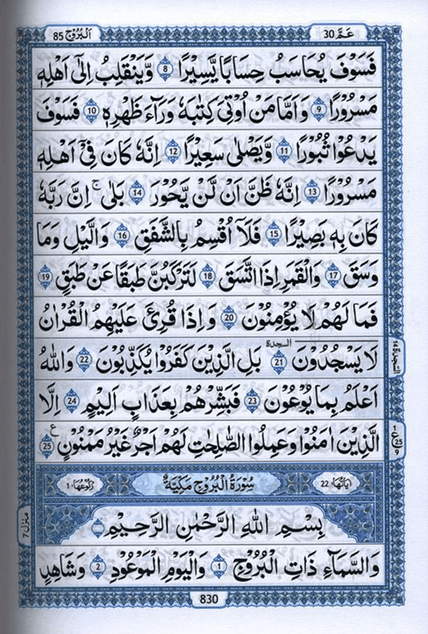 عـمّ 30
البروج 85
فَسَوْفَ يُحَاسَبُ حِسَابًا يَّسِيْرًا 8 وَّيَنْقَلِبُ اِلٰٓى اَهْلِهٖ
مَسْرُوْرًا 9 وَاَمَّا مَنْ اُوْتِيَ كِتٰبَهٗ وَرَآءَ ظَهْرِهٖ 10 فَسَوْفَ
يَدْعُوْا ثُبُوْرًا 11 وَّيَصْلٰى سَعِيْرًا 12 اِنَّهٗ كَانَ فِيْٓ اَهْلِهٖ
مَسْرُوْرًا 13 اِنَّهٗ ظَنَّ اَنْ لَّنْ يَّحُوْرَ 14 بَلٰٓى ۚ اِنَّ رَبَّهٗ
كَانَ بِهٖ بَصِيْرًا 15 فَلَآ اُقْسِمُ بِالشَّفَقِ 16 وَالَّيْلِ وَمَا
وَسَقَ 17 وَالْقَمَرِ اِذَا اتَّسَقَ 18 لَتَرْكَبُنَّ طَبَقًا عَنْ طَبَقٍ 19
فَمَا لَهُمْ لَا يُؤْمِنُوْنَ 20 وَاِذَا قُرِئَ عَلَيْهِمُ الْقُرْاٰنُ
لَا يَسْجُدُوْنَ السجدة 21 بَلِ الَّذِيْنَ كَفَرُوْا يُكَذِّبُوْنَ 22 وَاللّٰهُ
اَعْلَمُ بِمَا يُوْعُوْنَ 23 فَبَشِّرْهُمْ بِعَذَابٍ اَلِيْمٍ 24 اِلَّا
الَّذِيْنَ اٰمَنُوْا وَعَمِلُوا الصّٰلِحٰتِ لَهُمْ اَجْرٌ غَيْرُ مَمْنُوْنٍ 25 ع
اٰيَاتُهَا 22 سُوْرَةُ الْبُرُوْجِ مَكِّيَّةٌ رُكُوْعُهَا 1
بِسْمِ اللّٰهِ الرَّحْمٰنِ الرَّحِيْمِ
وَالسَّمَآءِ ذَاتِ الْبُرُوْجِ 1 وَالْيَوْمِ الْمَوْعُوْدِ 2 وَشَاهِدٍ
منزل 7
830